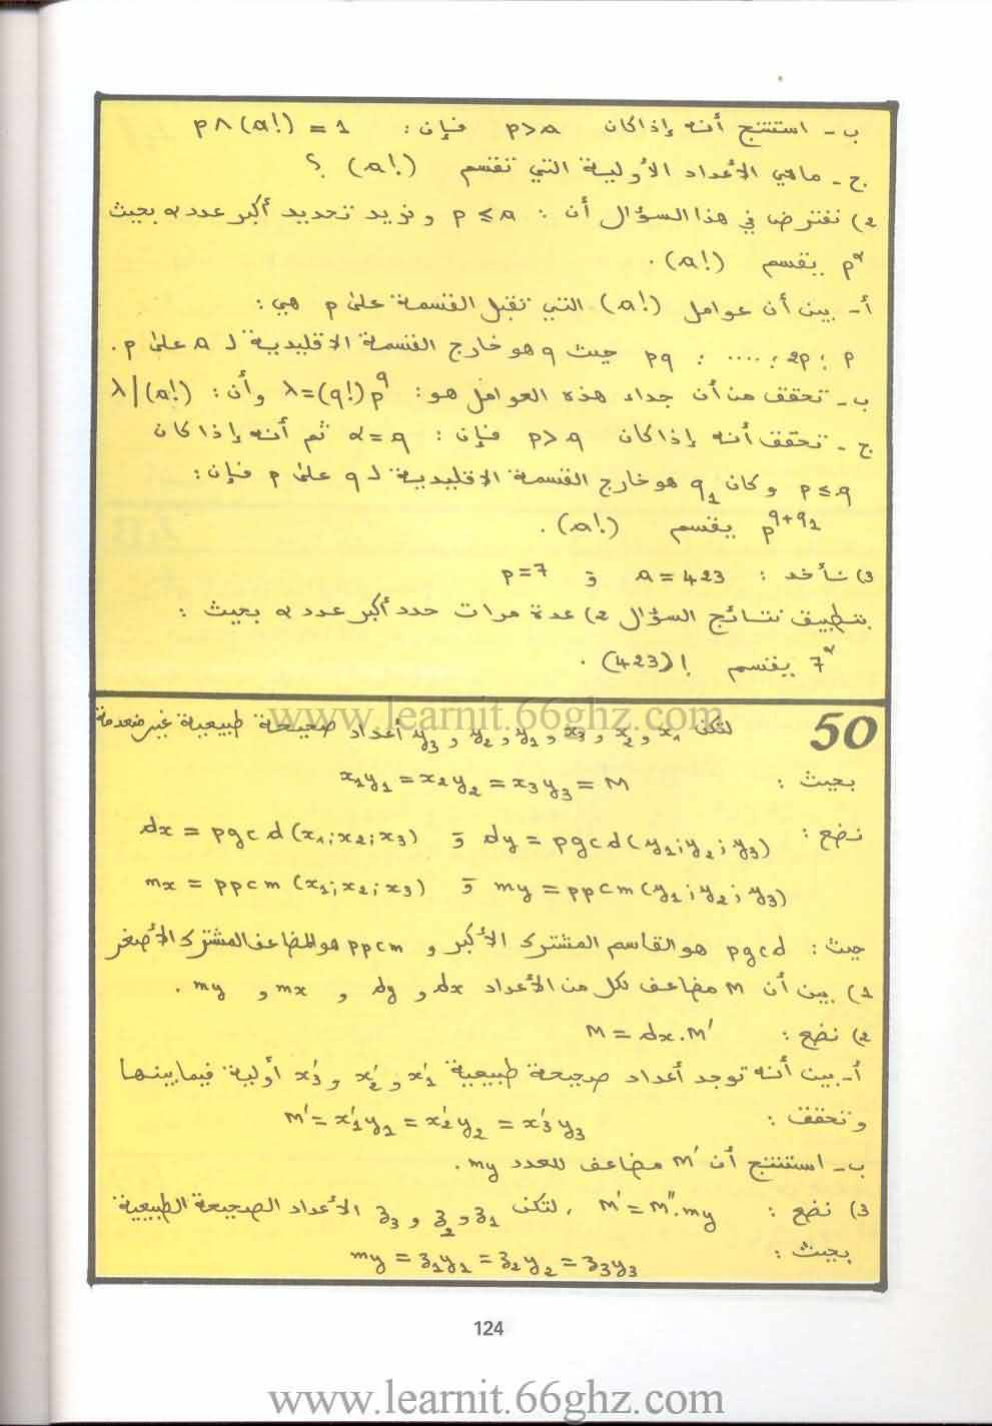 ب - استنتج أنه إذا كان p>a فإن : p∧(a!) = 1
ج - ماهي الأعداد الأولية التي تقسم (a!) ؟
2) نفترض في هذا السؤال أن : p ≤ a ونريد تحديد أكبر عدد α بحيث
p^α يقسم (a!) .
أ - بين أن عوامل (a!) التي تقبل القسمة على p هي :
p ; 2p ; .... ; pq حيث q هو خارج القسمة الاقليدية لـ a على p .
ب - تحقق من أن جداء هذه العوامل هو : λ=(q!)p^q وأن : λ|(a!)
ج - تحقق أنه إذا كان p>q فإن : α=q ثم أنه إذا كان
p≤q وكان q₁ هو خارج القسمة الاقليدية لـ q على p فإن :
p^(q+q₁) يقسم (a!) .
3) نأخد : a = 423 و p=7
بتطبيق نتائج السؤال 2) عدة مرات حدد أكبر عدد α بحيث :
7^α يقسم !(423) .
www.learnit.66ghz.com
50 لتكن x₁ و x₂ و x₃ و y₁ و y₂ و y₃ أعداد صحيحة طبيعية غير منعدمة
بحيث : x₁y₁ = x₂y₂ = x₃y₃ = M
نضع : dx = pgcd(x₁;x₂;x₃) و dy = pgcd(y₁;y₂;y₃)
mx = ppcm(x₁;x₂;x₃) و my = ppcm(y₁;y₂;y₃)
حيث : pgcd هو القاسم المشترك الأكبر و ppcm هو المضاعف المشترك الأصغر
1) بين أن M مضاعف لكل من الأعداد dx و dy و mx و my .
2) نضع : M = dx.M'
أ - بين أنه توجد أعداد صحيحة طبيعية x'₁ و x'₂ و x'₃ أولية فيما بينها
وتحقق : M' = x'₁y₁ = x'₂y₂ = x'₃y₃
ب - استنتج أن M' مضاعف للعدد my .
3) نضع : M' = M".my . لتكن z₁ و z₂ و z₃ الأعداد الصحيحة الطبيعية
بحيث : my = z₁y₁ = z₂y₂ = z₃y₃
124
www.learnit.66ghz.com